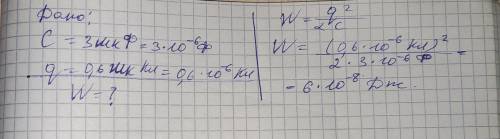 Дано:
C = 3 мкФ = 3·10⁻⁶ Ф
q = 0,6 мкКл = 0,6·10⁻⁶ Кл
W = ?
W = q²/2C
W = (0,6·10⁻⁶ Кл)²/2·3·10⁻⁶ Ф =
= 6·10⁻⁸ Дж.